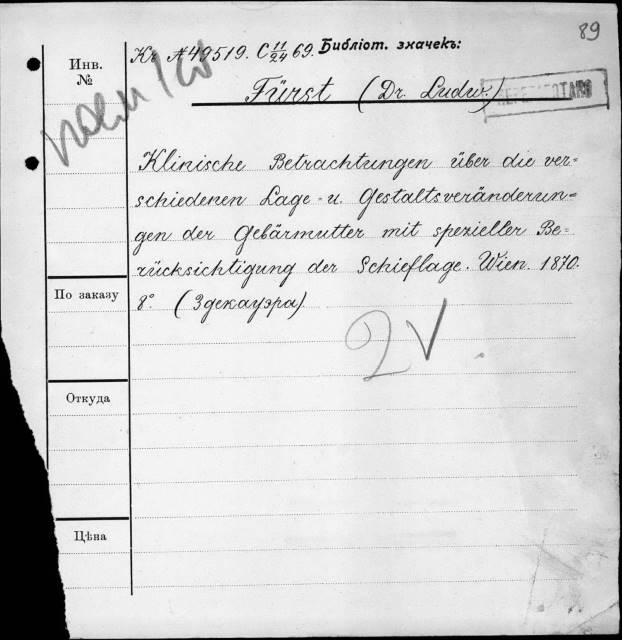 89
Къ № 49519. C 11/24 69. Библіот. значекъ:
Инв.
№
Fürst (Dr. Ludw.)
Klinische Betrachtungen über die ver=
schiedenen Lage= u. Gestaltsveränderun=
gen der Gebärmutter mit spezieller Be=
rücksichtigung der Schieflage. Wien. 1870.
8° (3 декауэра)
По заказу
2 V
Откуда
Цѣна